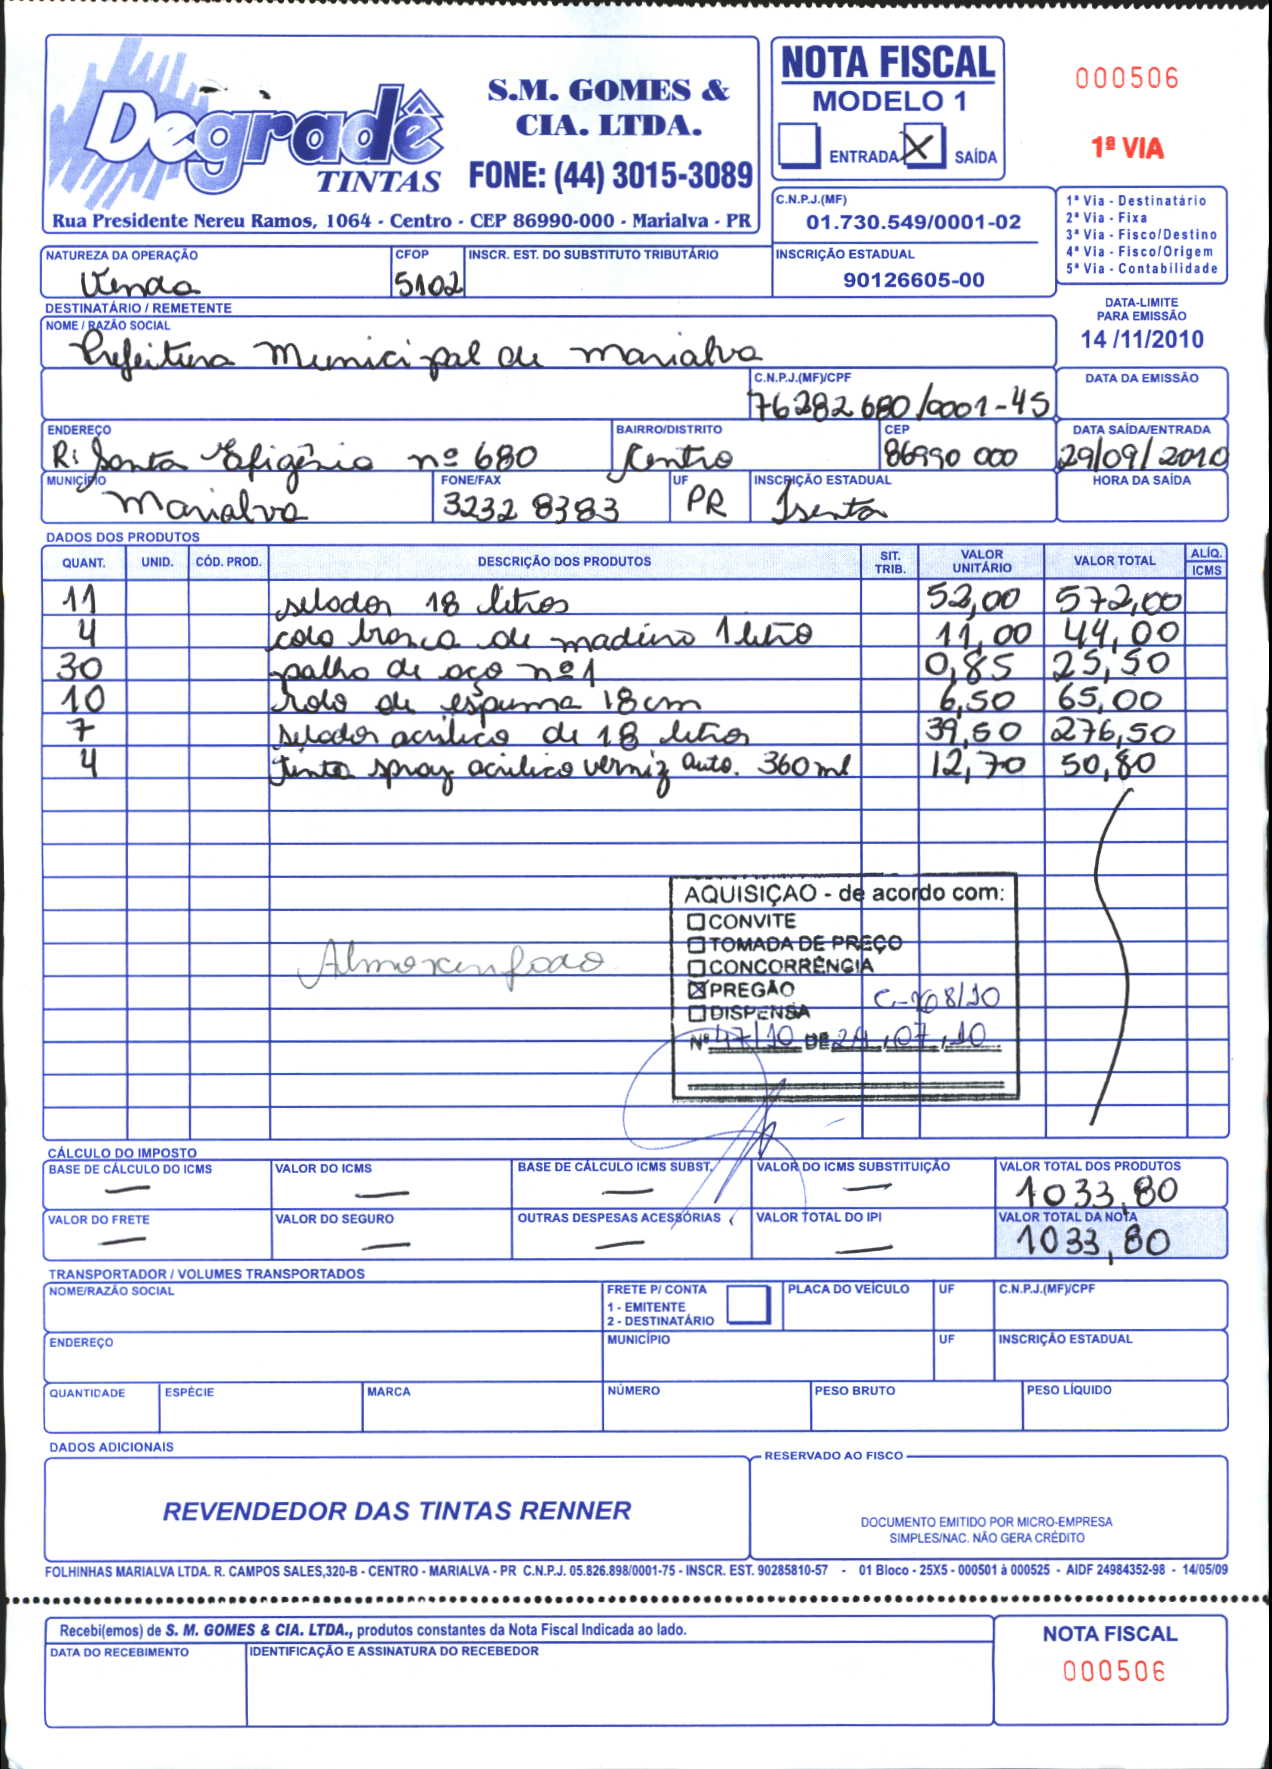 Degradê
TINTAS
S.M. GOMES &
CIA. LTDA.
FONE: (44) 3015-3089
Rua Presidente Nereu Ramos, 1064 - Centro - CEP 86990-000 - Marialva - PR
NOTA FISCAL
MODELO 1
ENTRADA X SAÍDA
000506
1ª VIA
C.N.P.J.(MF)
01.730.549/0001-02
INSCRIÇÃO ESTADUAL
90126605-00
1ª Via - Destinatário
2ª Via - Fixa
3ª Via - Fisco/Destino
4ª Via - Fisco/Origem
5ª Via - Contabilidade
NATUREZA DA OPERAÇÃO CFOP INSCR. EST. DO SUBSTITUTO TRIBUTÁRIO
Venda 5102
DESTINATÁRIO / REMETENTE
NOME / RAZÃO SOCIAL
Prefeitura Municipal de Marialva
DATA-LIMITE
PARA EMISSÃO
14 /11/2010
C.N.P.J.(MF)/CPF DATA DA EMISSÃO
76282680/0001-45
ENDEREÇO BAIRRO/DISTRITO CEP DATA SAÍDA/ENTRADA
R: Santa Efigênia nº 680 Centro 86990 000 29/09/2010
MUNICÍPIO FONE/FAX UF INSCRIÇÃO ESTADUAL HORA DA SAÍDA
Marialva 3232 8383 PR Isenta
DADOS DOS PRODUTOS
QUANT. UNID. CÓD. PROD. DESCRIÇÃO DOS PRODUTOS SIT. TRIB. VALOR UNITÁRIO VALOR TOTAL ALÍQ. ICMS
11 selador 18 litros 52,00 572,00
4 cola branca de madeira 1 litro 11,00 44,00
30 palha de aço nº 1 0,85 25,50
10 rolo de espuma 18cm 6,50 65,00
7 selador acrilico de 18 litros 39,50 276,50
4 tinta spray acrilico verniz auto. 360 ml 12,70 50,80
AQUISIÇÃO - de acordo com:
CONVITE
TOMADA DE PREÇO
CONCORRÊNCIA
PREGÃO
DISPENSA
Nº 47/10 DE 07, 10
Almoxarifado
CÁLCULO DO IMPOSTO
BASE DE CÁLCULO DO ICMS VALOR DO ICMS BASE DE CÁLCULO ICMS SUBST. VALOR DO ICMS SUBSTITUIÇÃO VALOR TOTAL DOS PRODUTOS
— — — — 1033,80
VALOR DO FRETE VALOR DO SEGURO OUTRAS DESPESAS ACESSÓRIAS VALOR TOTAL DO IPI VALOR TOTAL DA NOTA
— — — — 1033,80
TRANSPORTADOR / VOLUMES TRANSPORTADOS
NOME/RAZÃO SOCIAL FRETE P/ CONTA PLACA DO VEÍCULO UF C.N.P.J.(MF)/CPF
1 - EMITENTE
2 - DESTINATÁRIO
ENDEREÇO MUNICÍPIO UF INSCRIÇÃO ESTADUAL
QUANTIDADE ESPÉCIE MARCA NÚMERO PESO BRUTO PESO LÍQUIDO
DADOS ADICIONAIS
REVENDEDOR DAS TINTAS RENNER
RESERVADO AO FISCO
DOCUMENTO EMITIDO POR MICRO-EMPRESA
SIMPLES/NAC. NÃO GERA CRÉDITO
FOLHINHAS MARIALVA LTDA. R. CAMPOS SALES,320-B - CENTRO - MARIALVA - PR C.N.P.J. 05.826.898/0001-75 - INSCR. EST. 90285810-57 - 01 Bloco - 25X5 - 000501 à 000525 - AIDF 24984352-98 - 14/05/09
Recebi(emos) de S. M. GOMES & CIA. LTDA., produtos constantes da Nota Fiscal Indicada ao lado.
DATA DO RECEBIMENTO IDENTIFICAÇÃO E ASSINATURA DO RECEBEDOR
NOTA FISCAL
000506